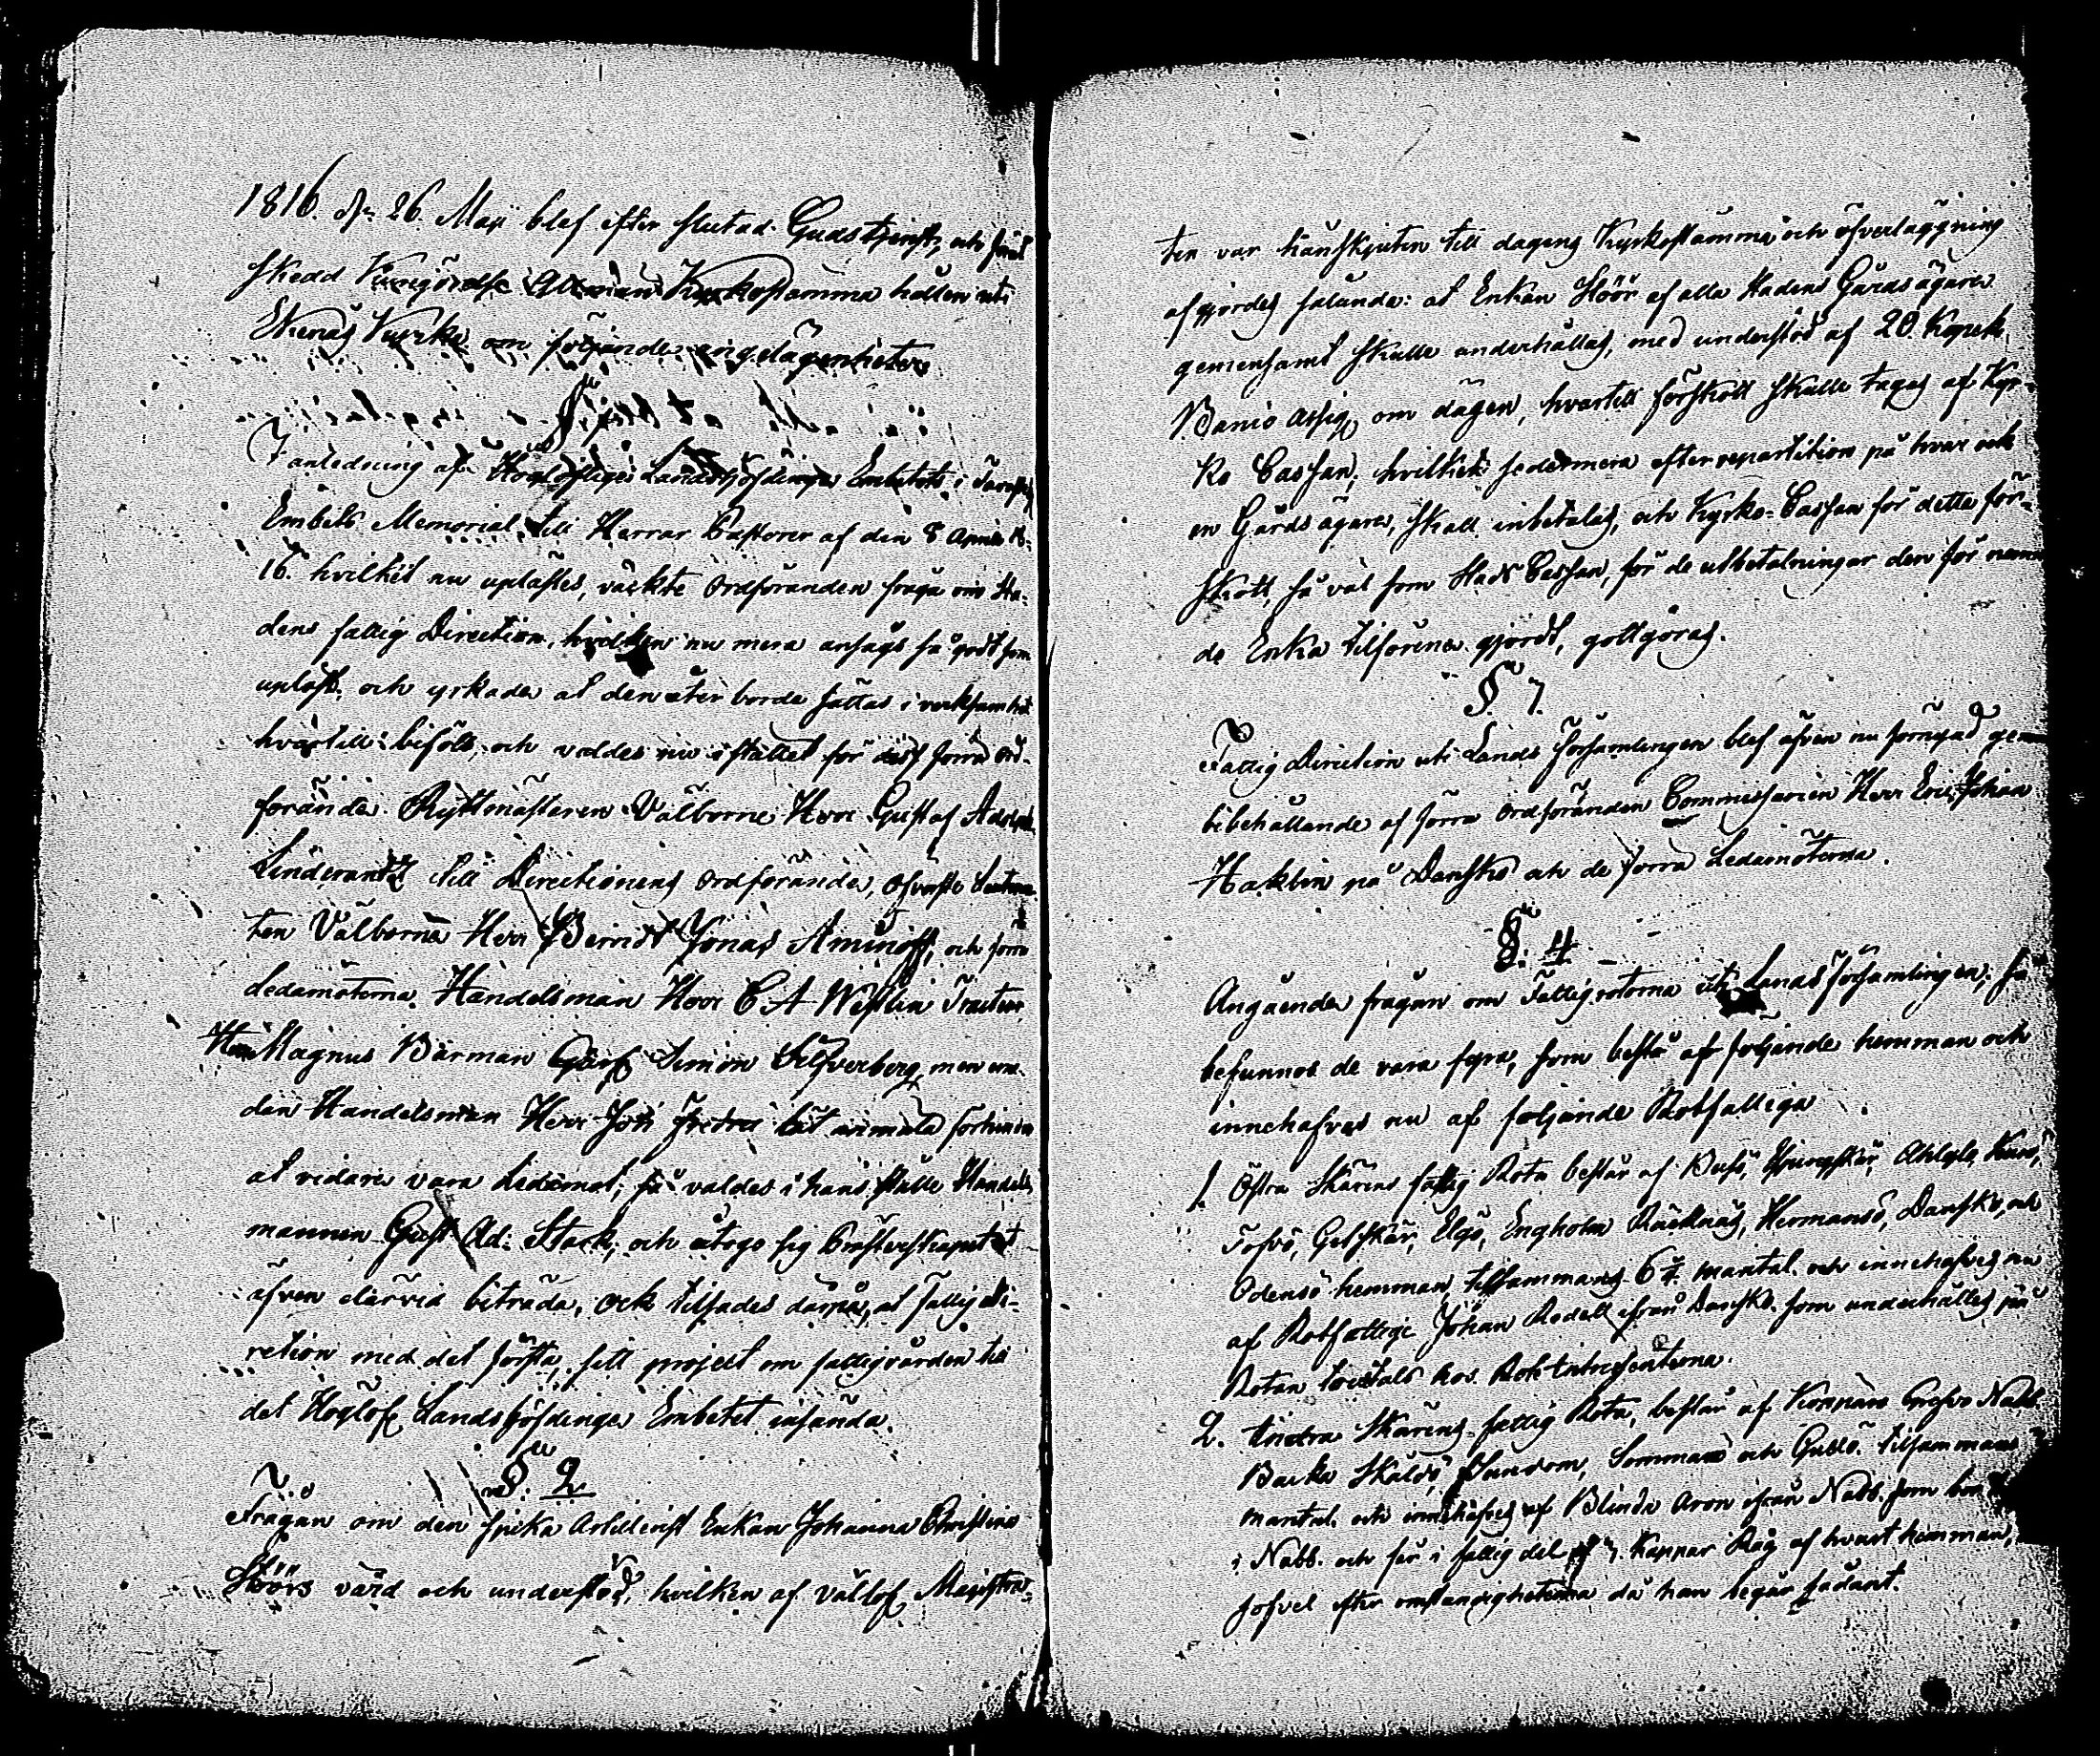 1816. d. 26. Maji blef efter slutad Gudstjenst, och förut
skedd Kungörelse Allmän Kyrkostämma hållen uti
Ekenäs Kyrka om följande angelägenheter
§
I anledning af Höglofliga Landshöfdinge Embetets i
Embets Memorial till Herrar Pastorer af den 8 April 18-
16. hvilket nu uplästes, väckte Ordföranden fråga om Sta-
dens fattig Direction, hvilken nu mera ansågs så godt som
uplöst, och yrkade at den åter borde sättas i verksamhet
hvartill biföls, och valdes nu istället för dess förra Ord-
förande Ryttmästaren Välborne Herr Gustaf Adolph
till Directionens Ordförande, Öfverste Lieutnan-
ten Välborne Herr Berndt Jonas Aminoff, och förra
Ledamöterna Handelsman Herr C. A. Westlin
Herr Magnus Bärman Simon Silfverberg, men em-
dan Handelsman Herr Joh: lät anmäla
at vidare vara Ledamot; så valdes i hans ställe Handels
mannen Gust. Ad: Stark, och åtogo sig Presterskapet at
äfven därvid biträda, ock tilsades dampå, at fattig Di-
rection med det första, sitt project om fattigvården till
det Höglofl. Landshöfdinge Embetet insända.
§. 2
Frågan om den sjuka Enkan Johanna Christina
Höörs vård och understöd, hvilken af vällofl. Magistra-
ten var hänskjuten till dagens Kyrkostämma och öfverläggning
afgjordes sålunda: at Enkan Höör af alla stadens Gårdsägare
gemensamt skulle underhållas, med understöd af 20. Kopek
Banco Assig. om dagen, hvartill förskott skulle tagas af Kyr-
ko Cassan, hvilket sedermera efter repartition på hvar och
en Gårds ägare, skall inbetalas, och Kyrko-Cassan för detta för-
skott, så väl som Stads Cassan, för de utbetalningar den för nemn
de Enka tilförene gjordt, gottgöras.
§ 3.
Fattig Direction uti Lands Församlingen blef äfven nu förnyad genom
bibehållande af förra Ordföranden Commissarien Herr Eric Johan
Haklin på Danskö och de förra Ledamöterna.
§. 4
Angående frågan om Fattigrotorna uti Lands församlingen; så
befunnos de vara fyra, som bestå af följande hemman och
innehafves nu af följande Rotfattiga
1. Östra Skärens fattig Rota består af Busö,
Torsö, Getskär, Elgö, Engholm Räcknäs, Hermansö, Danskö, och
Odensö hemman, tillsammans mantal. och innehafves nu
af Rotfattige Johan Rodell ifrån Danskö. som underhålles på
Rotan hos Rot Intressenterna.
2. Skärens fattig Rota, består af
Skåldö Sundom, Sommarö och Gullö. tilsammans
mantal. och innehafves af Blinda Aron ifrån Nabb. som
i Nabb. och får i fattig del Kappar Råg af hvart hemman,
sofvel efter omständigheterna då han begär sådant.